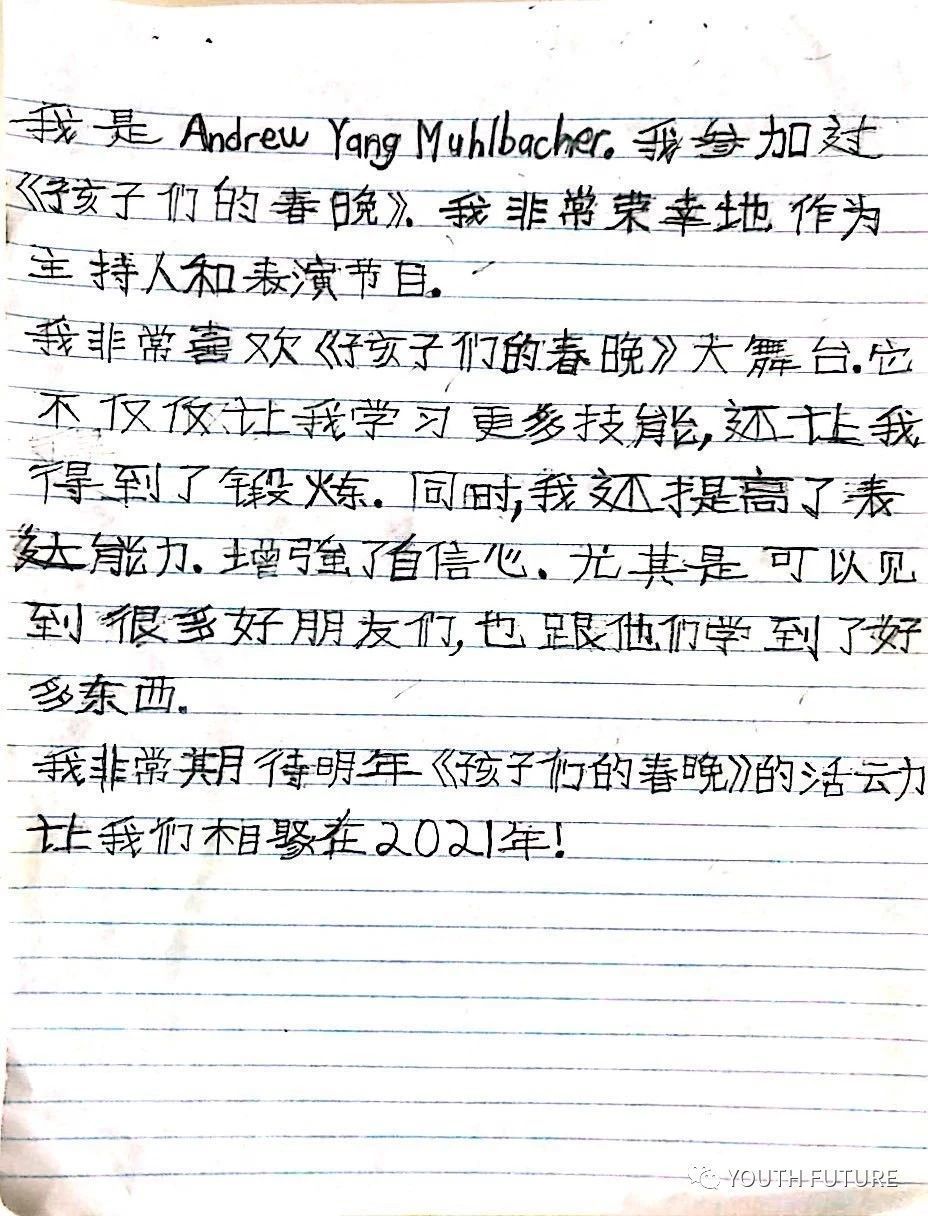 我是 Andrew Yang Muhlbacher. 我参加过
《孩子们的春晚》. 我非常荣幸地作为
主持人和表演节目.
我非常喜欢《孩子们的春晚》大舞台. 它
不仅仅让我学习更多技能, 还让我
得到了锻炼. 同时, 我还提高了表
达能力. 增强了自信心. 尤其是可以见
到很多好朋友们, 也跟他们学到了好
多东西.
我非常期待明年《孩子们的春晚》的活动
让我们相聚在2021年!
YOUTH FUTURE